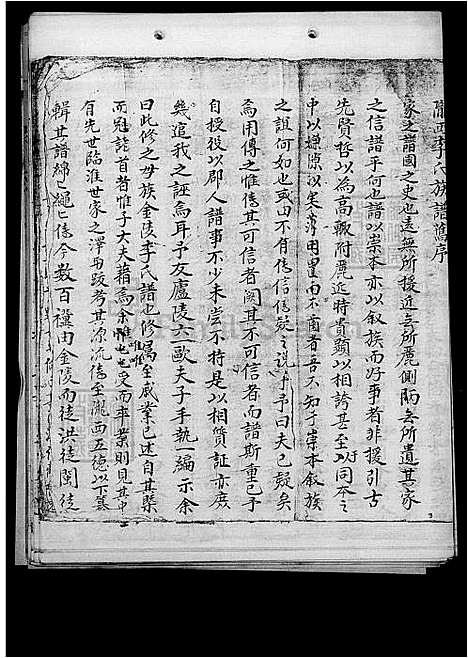 隴西李氏族譜舊序
家之譜國之史也遠無所接近無所麗側陋無所遺其家
之信譜乎何也譜以崇本亦以叙族而好事者非援引古
先賢哲以為高輒附麗近時貴顕以相誇甚至以同本之
中以嫌隙以笑 因置而不齒者吾不知于崇本叙族
之誼何如也或曰不有傳信傳疑之說乎予曰夫已疑矣
為用傳之惟傳其可信者闕其不可信者而譜斯重已予
自授役以郡人譜事不少未嘗不持是以相質証亦庶
幾追我之誣焉耳予友廬陵六一歐夫子手執一編示余
曰此修之母族金陵李氏譜也修 至戚業已述自其槩
而冠誌首者惟子大夫藉為余唯唯也受而卒業則見其中
有先世臨淮世家之澤再跡考其源流傳至隴西五德以下纂
輯其譜綿綿繩繩傳今數百禩由金陵而徙洪徙閩徙